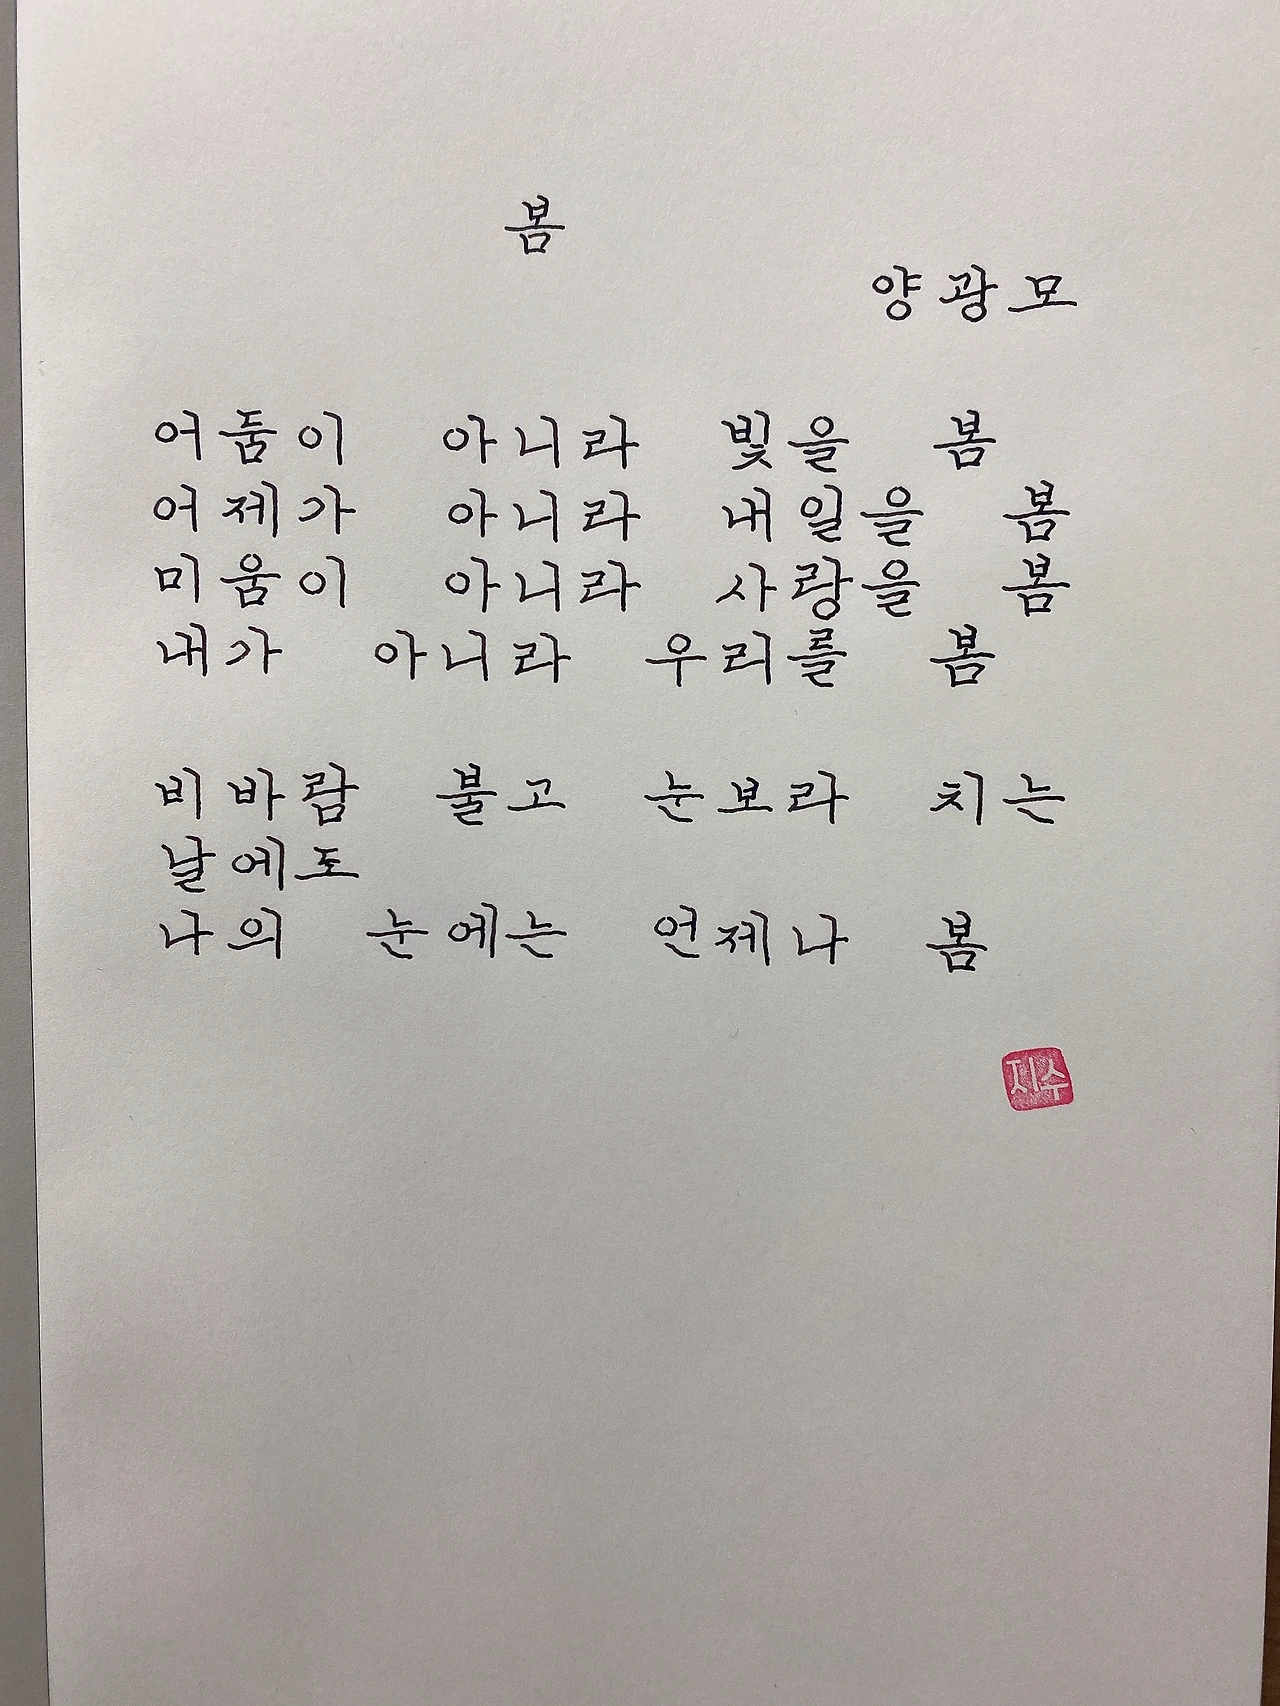 봄
양광모
어둠이 아니라 빛을 봄
어제가 아니라 내일을 봄
미움이 아니라 사랑을 봄
내가 아니라 우리를 봄
비바람 불고 눈보라 치는
날에도
나의 눈에는 언제나 봄
지수